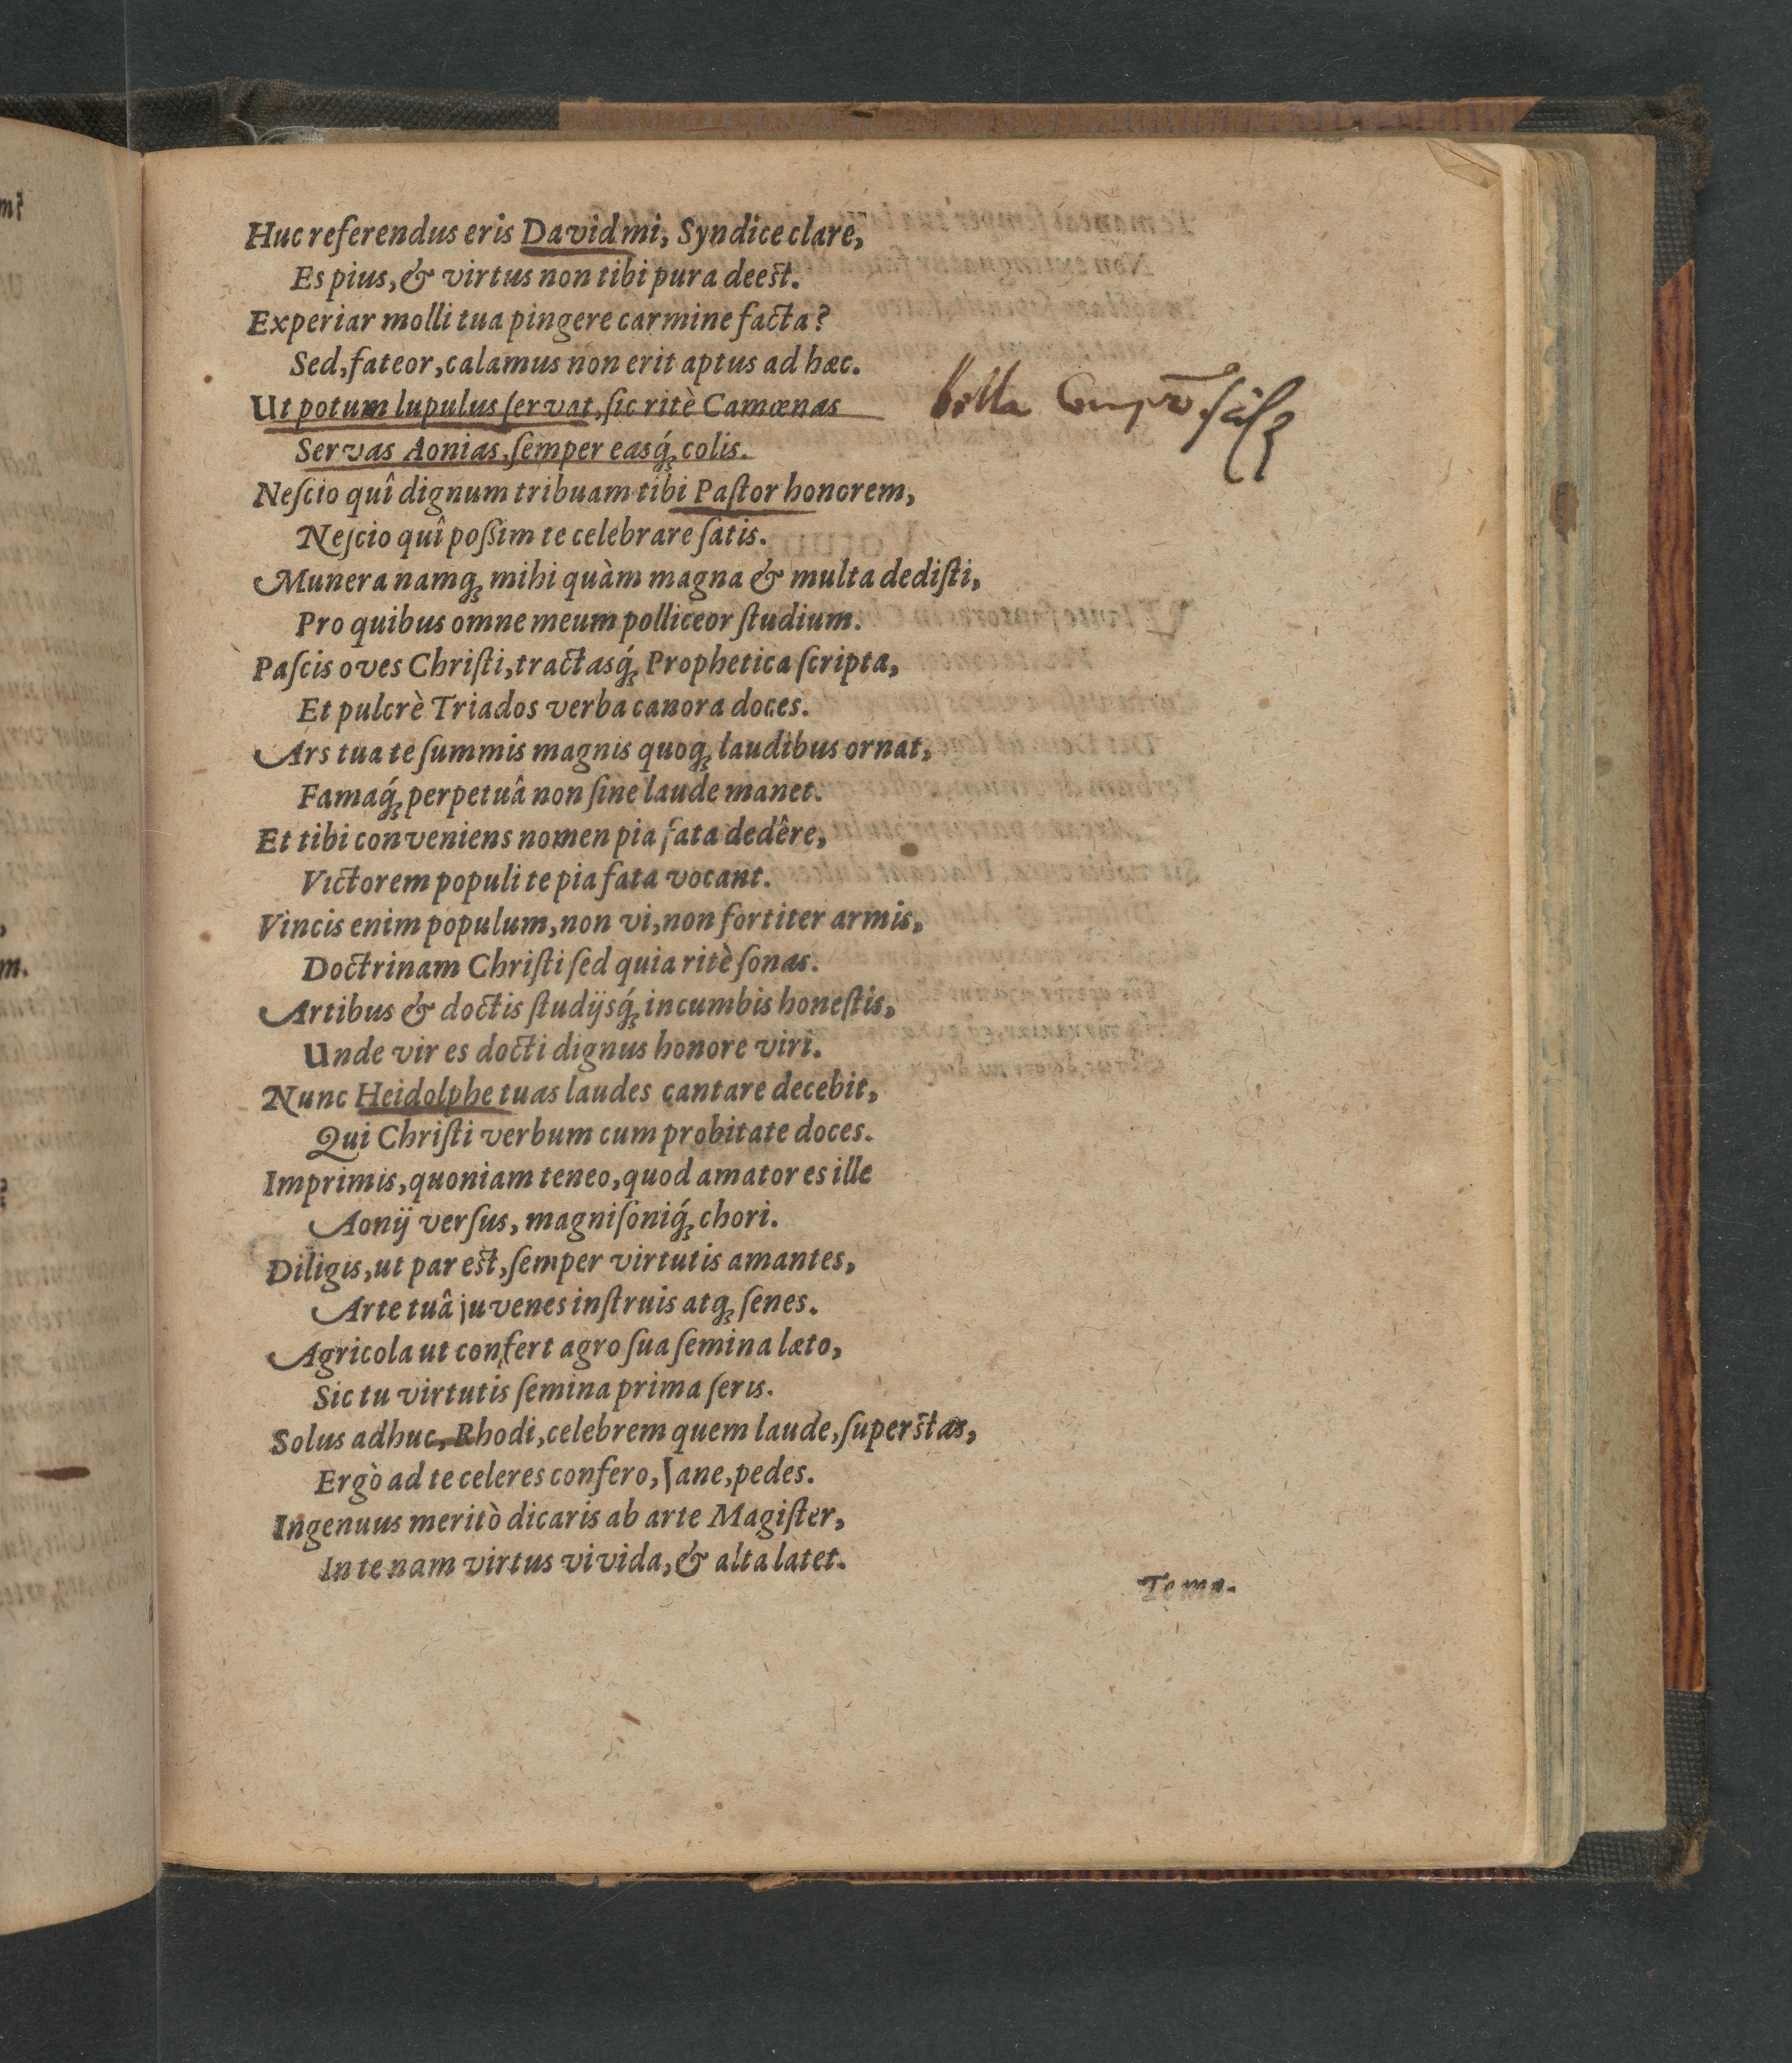 Huc referendus eris David mi, Syndice clare,
Es pius, & virtus non tibi pura deest.
Experiar molli tua pingere carmine facta?
Sed, fateor, calamus non erit aptus ad hæc.
Ut potum lupulus ſervat, ſic ritè Camœnas
bella
Servas Aonias, ſemper easq́; colis.
Neſcio quî dignum tribuam tibi Paſtor honorem,
Neſcio quî poßim te celebrare ſatis.
Munera namq; mihi quàm magna & multa dediſti,
Pro quibus omne meum polliceor ſtudium.
Paſcis oves Chriſti, tractasq́; Prophetica ſcripta,
Et pulcrè Triados verba canora doces.
Ars tua te ſummis magnis quoq; laudibus ornat,
Famaq́; perpetuâ non ſine laude manet.
Et tibi conveniens nomen pia fata dedêre,
Victorem populi te pia fata vocant.
Vincis enim populum, non vi, non fortiter armis,
Doctrinam Chriſti ſed quia ritè ſonas.
Artibus & doctis ſtudijsq́; incumbis honeſtis,
Unde vir es docti dignus honore viri.
Nunc Heidolphe tuas laudes cantare decebit,
Qui Chriſti verbum cum probitate doces.
Imprimis, quoniam teneo, quod amator es ille
Aonij verſus, magniſoniq́; chori.
Diligis, ut par est, ſemper virtutis amantes,
Arte tuâ juvenes inſtruis atq; ſenes.
Agricola ut confert agro ſua ſemina læto,
Sic tu virtutis ſemina prima ſeris.
Solus adhuc, Rhodi, celebrem quem laude, ſuperstas,
Ergò ad te celeres confero, Jane, pedes.
Ingenuus meritò dicaris ab arte Magiſter,
In te nam virtus vivida, & alta latet.
Tema-